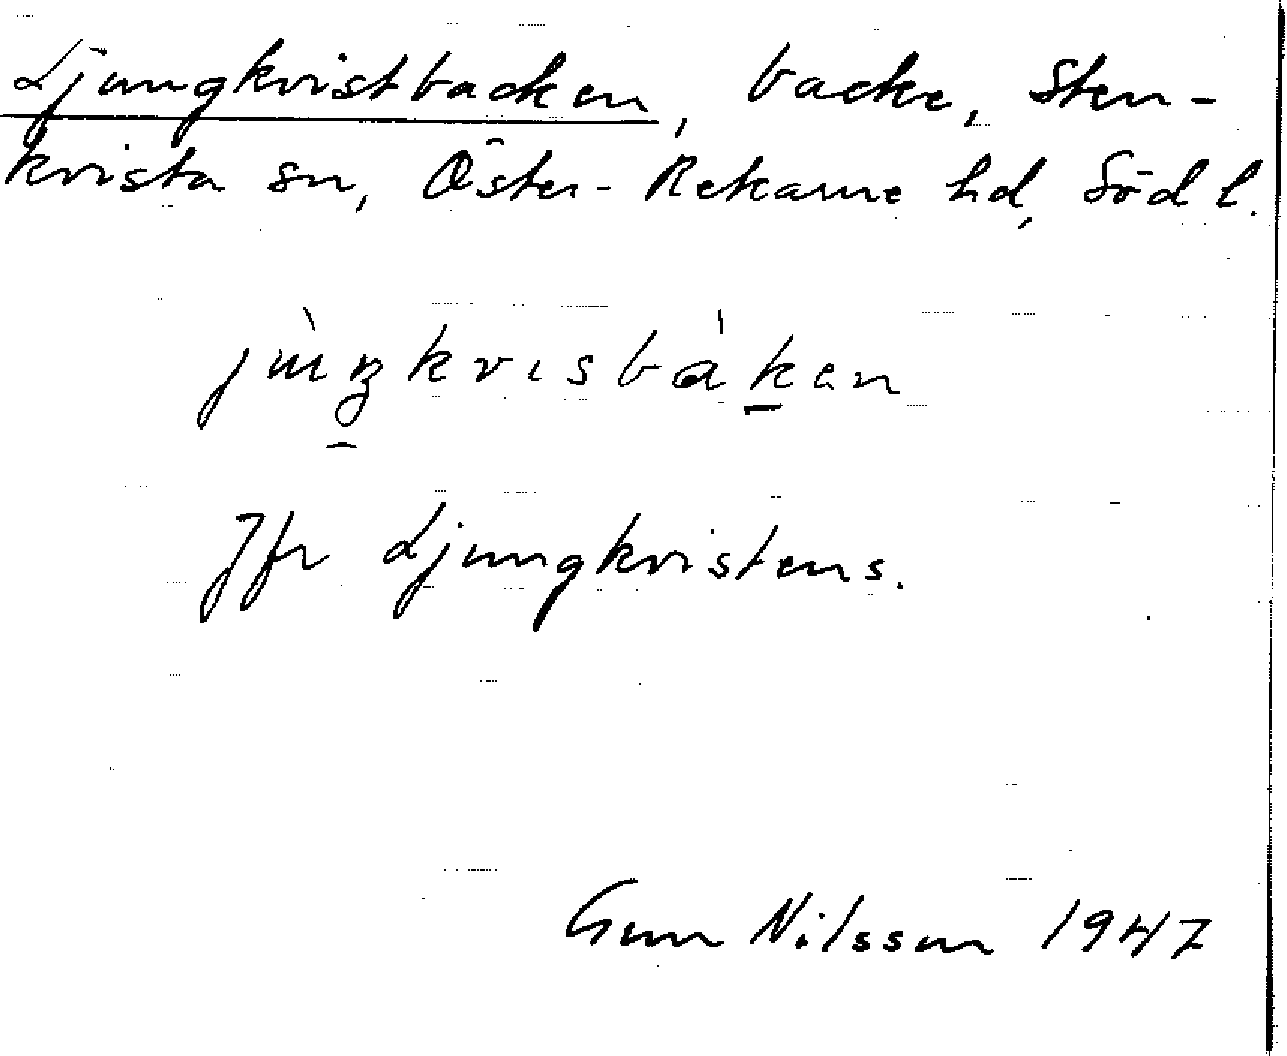 Ljungkvistbacken, backe, Sten-
kvista sn, Öster-Rekarne hd, Södl.
jùŋkvisbàken
Jfr Ljungkvistens.
Gun Nilsson 1947